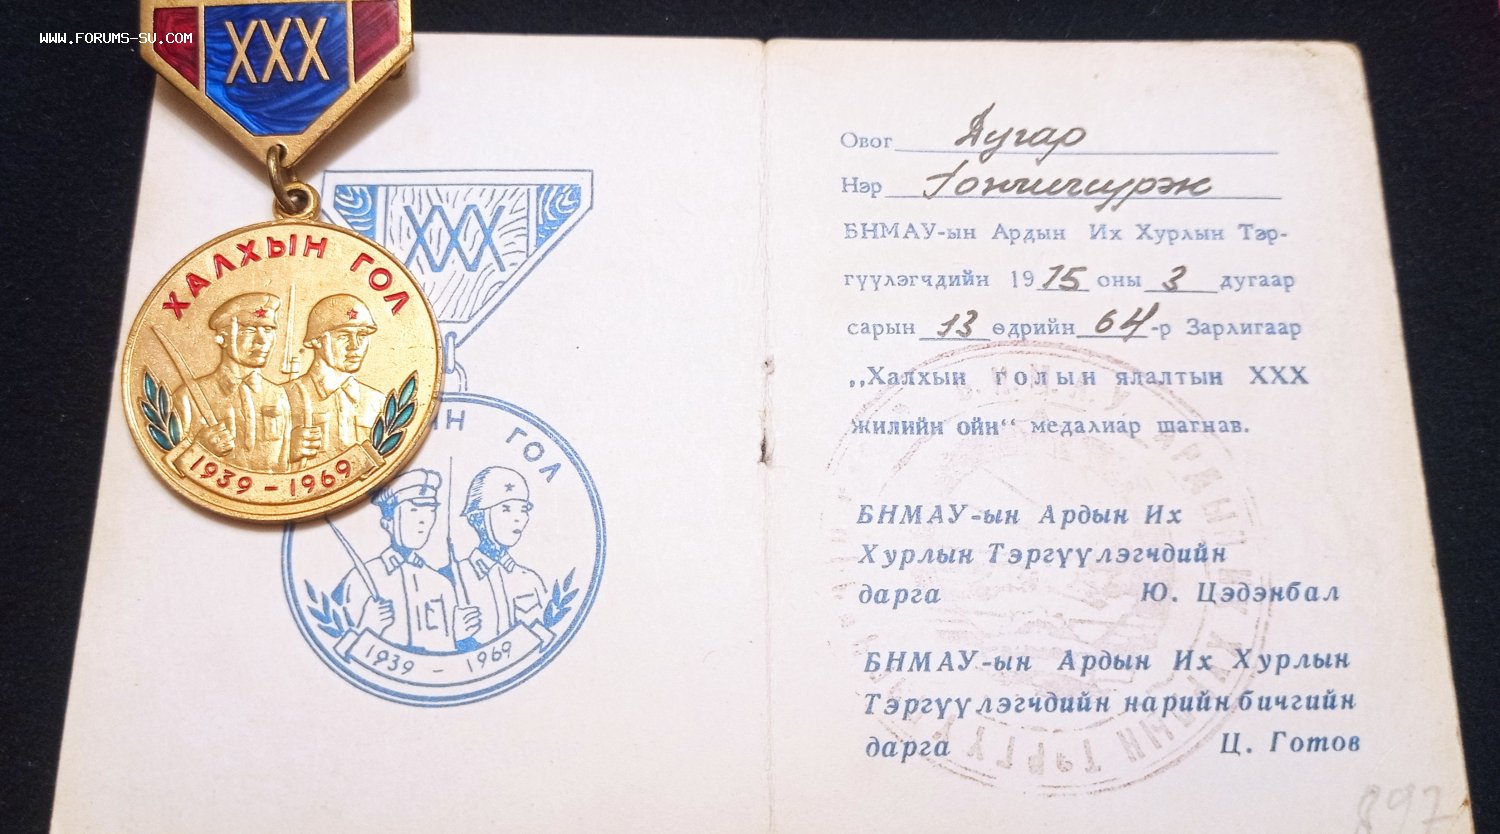 WWW.FORUMS-SU.COM
XXX
ХАЛХЫН ГОЛ
1939 – 1969
XXX
ЫН ГОЛ
1939 – 1969
Овог Дугар
Нэр Гончигсүрэн
БНМАУ-ын Ардын Их Хурлын Тэр-
гүүлэгчдийн 1975 оны 3 дугаар
сарын 13 өдрийн 64-р Зарлигаар
„Халхын голын ялалтын XXX
жилийн ойн“ медалиар шагнав.
БНМАУ-ын Ардын Их
Хурлын Тэргүүлэгчдийн
дарга Ю. Цэдэнбал
БНМАУ-ын Ардын Их Хурлын
Тэргүүлэгчдийн нарийн бичгийн
дарга Ц. Готов
897